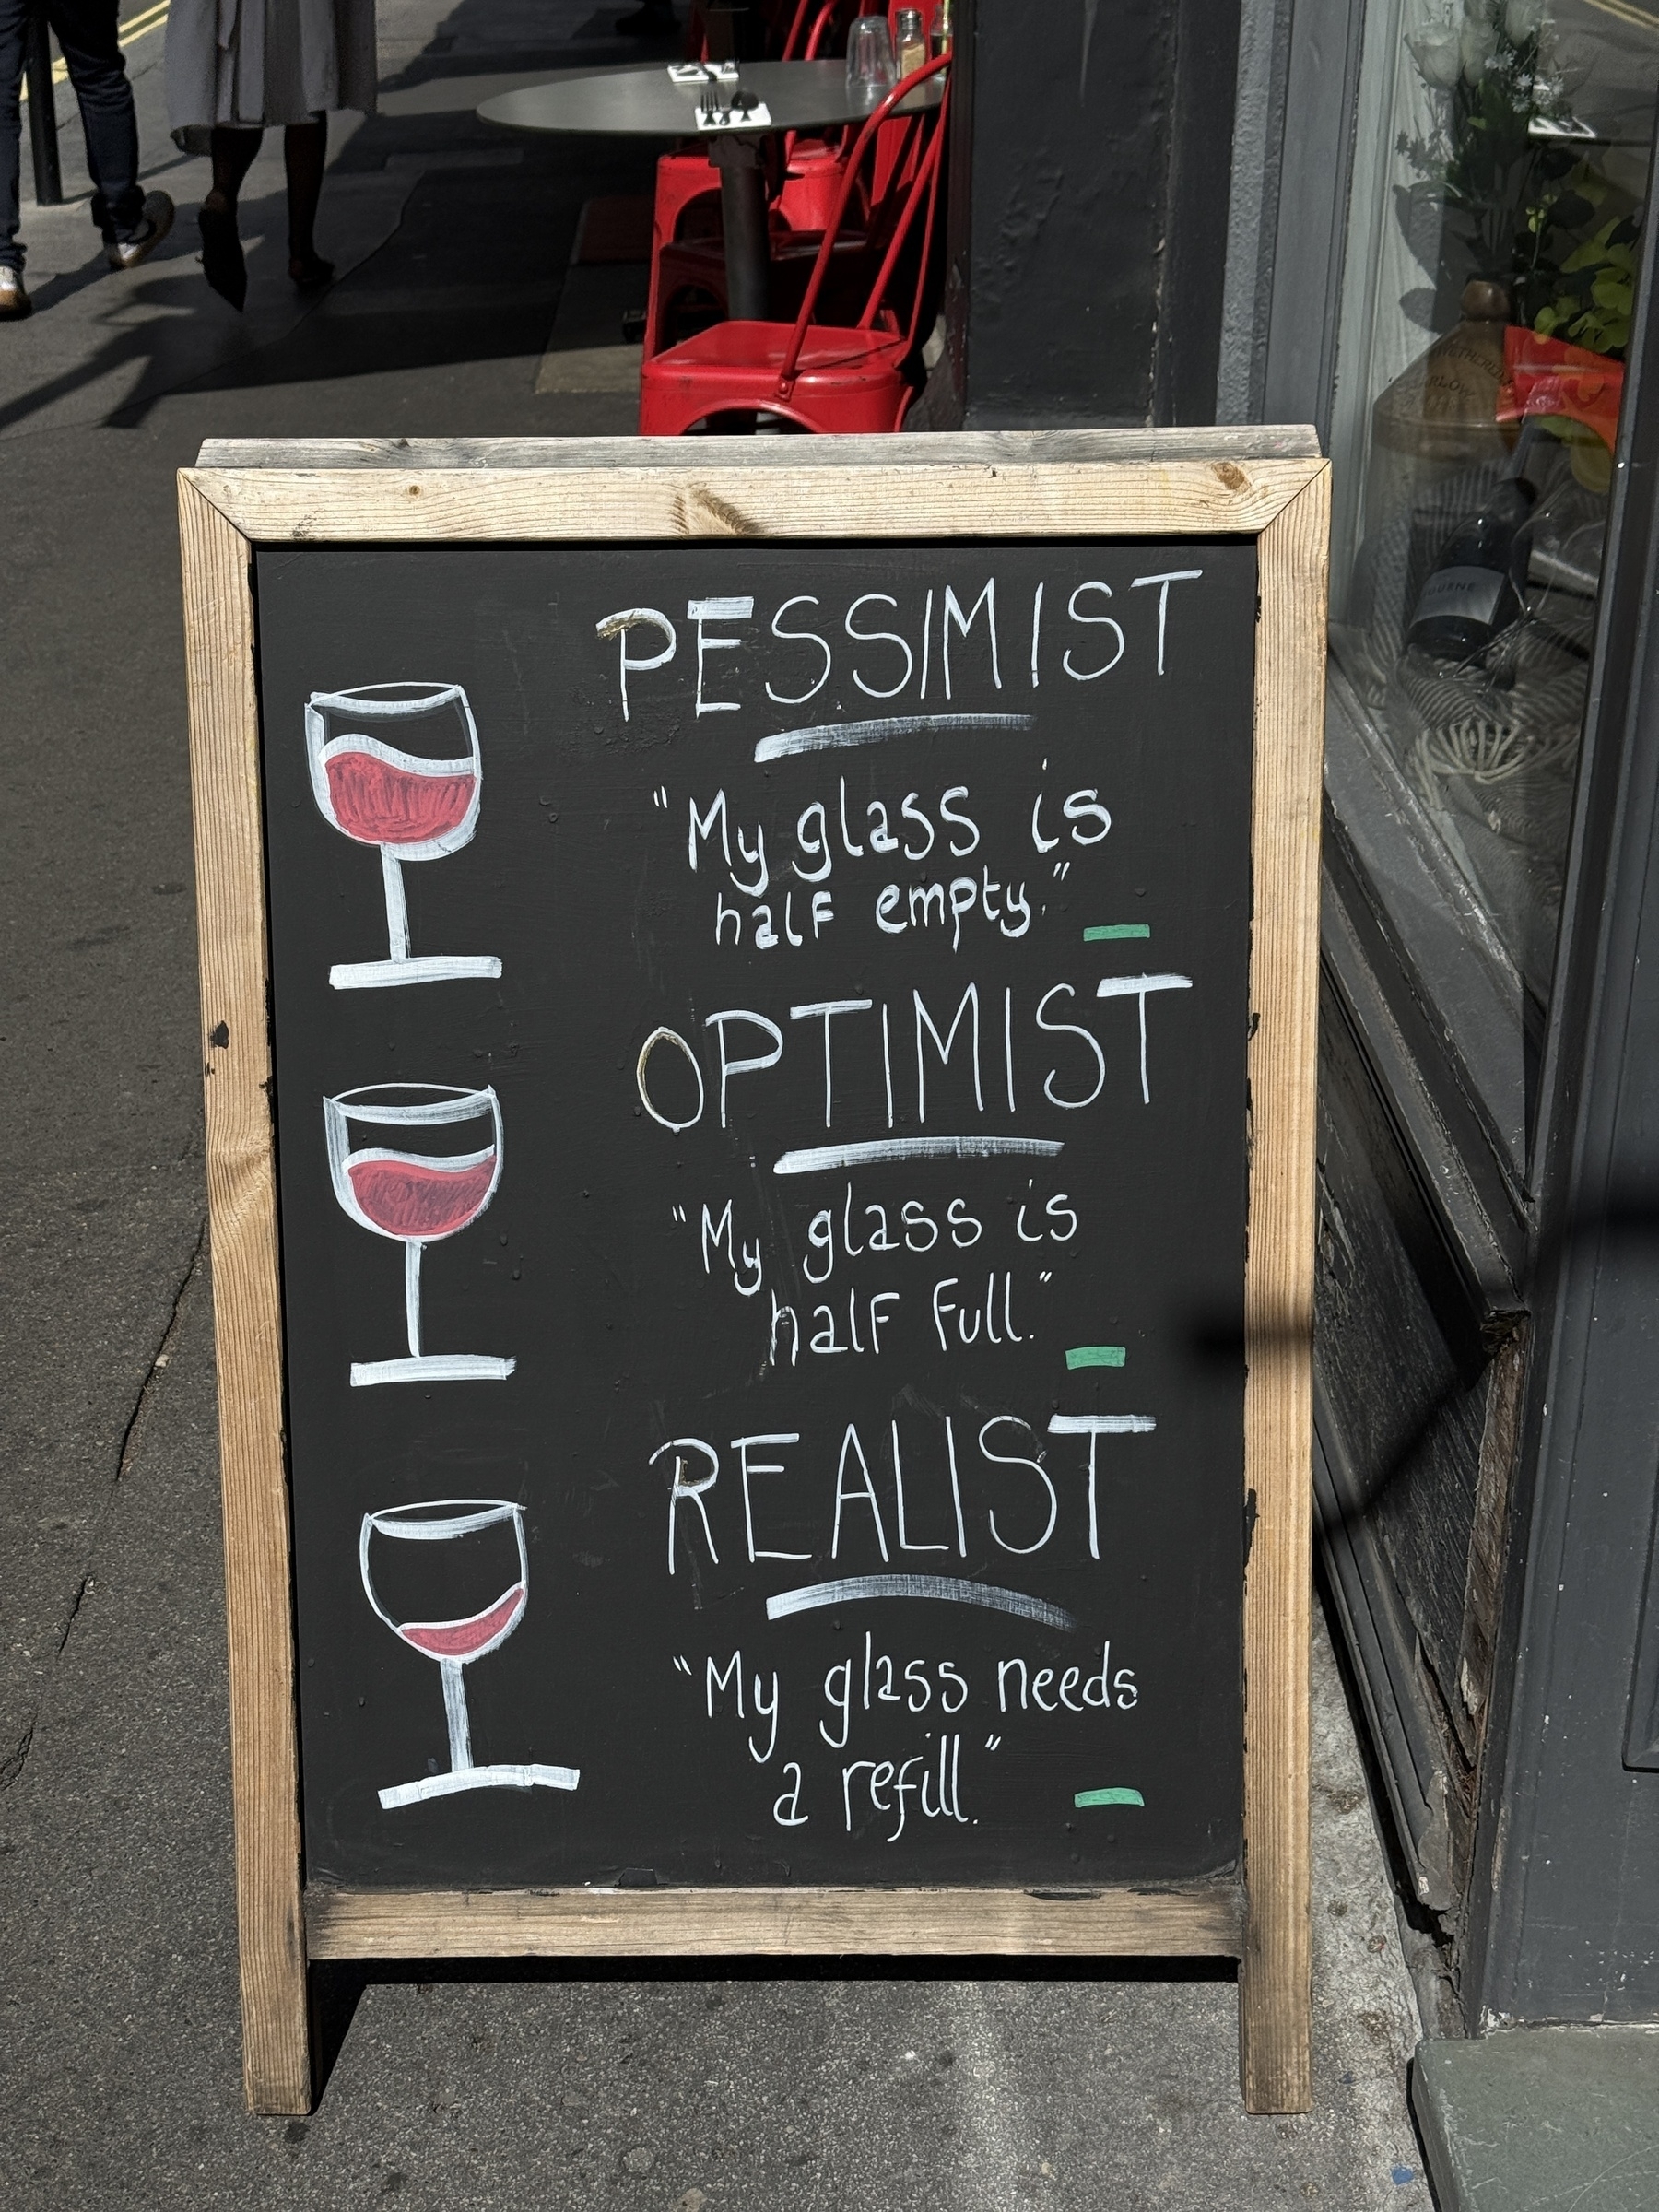 PESSIMIST
"My glass is
half empty."
OPTIMIST
"My glass is
half full."
REALIST
"My glass needs
a refill."